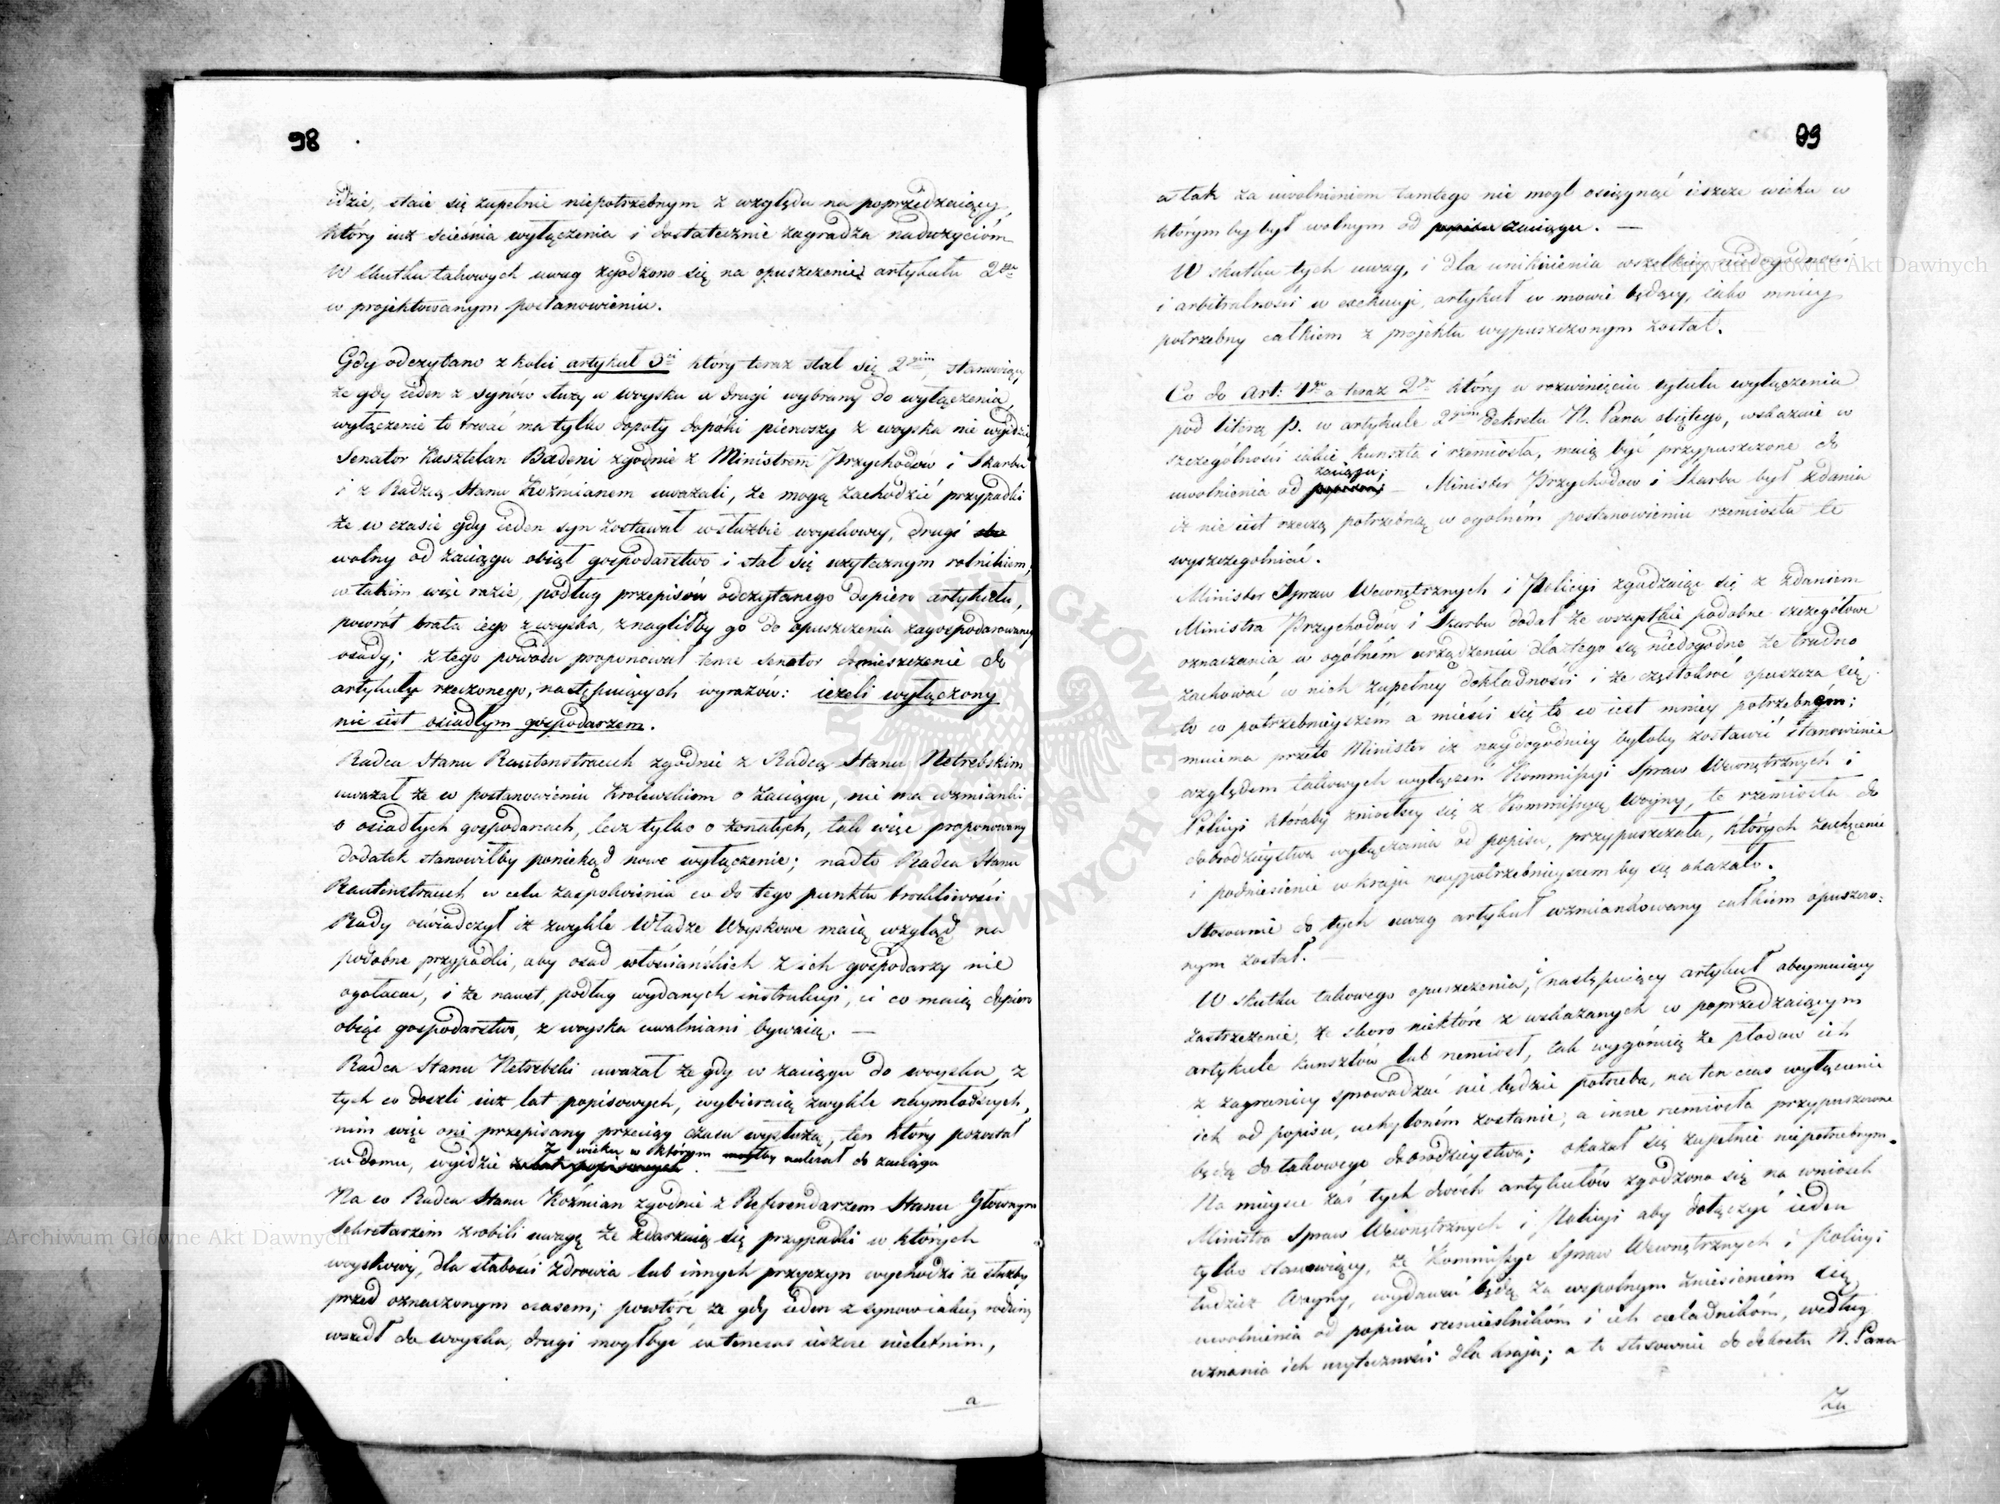 98
idzie, staie się zupełnie niepotrzebnym z względu na poprzedzaiący,
który iuż scieśnia wyłączenia i dostatecznie zagradza nadużyciom
W skutku takowych uwag zgodzono się na opuszczenie artykułu 2go
w projektowanym postanowieniu.
Gdy odczytano z kolei artykuł 3ci który teraz stał się 2gim, stanowiący
że gdy ieden z synów służy w woysku a drugi wybrany do wyłączenia,
wyłączenie to trwać ma tylko dopóty dopóki pierwszy z woyska nie wyidzie
Senator Kasztelan Badeni zgodnie z Ministrem Przychodów i Skarbu
i z Radzcą Stanu Koźmianem uważali, że mogą zachodzić przypadki
że w czasie gdy ieden syn zostawał w służbie woyskowey, drugi
wolny od zaciągu obiął gospodarstwo i stał się użytecznym rolnikiem;
w takim więc razie, podług przepisów odczytanego dopiero artykułu,
powrót brata iego z woyska, znagliłby go do opuszczenia zagospodarowaney
osady; z tego powodu proponował tenże Senator domieszczenie do
artykułu rzeczonego, następuiących wyrazów: ieżeli wyłączony
nie iest osiadłym gospodarzem.
Radca Stanu Rautenstrauch zgodnie z Radcą Stanu Netrebskim
uważał że w postanowieniu Krolewskiem o zaciągu, nie ma wzmianki
o osiadłych gospodarzach, lecz tylko o żonatych, tak więc proponowany
dodatek stanowiłby poniekąd nowe wyłączenie; nadto Radca Stanu
Rautenstrauch w celu zaspokoienia co do tego punktu troskliwości
Rady oświadczył iż zwykle Władze Woyskowe maią wzgląd na
podobne przypadki, aby osad włościańskich z ich gospodarzy nie
ogałacać, i że nawet, podług wydanych instrukcji, ci co maią dopiero
obiąć gospodarstwo, z woyska uwalniani bywaią. —
Radca Stanu Netrebski uważał że gdy w zaciągu do woyska, z
tych co doszli iuż lat popisowych, wybieraią zwykle naymłodszych,
nim więc oni przepisany przeciąg czasu wysłużą, ten który pozostał
w domu, wyidzie z wieku w którym należał do zaciągu
Na co Radca Stanu Koźmian zgodnie z Referendarzem Stanu Głownym
Sekretarzem zrobili uwagę że zdarzaią się przypadki w których
woyskowy, dla słabości zdrowia lub innych przyczyn wychodzi ze służby
przed oznaczonym czasem; powtóre że gdy ieden z synow iakiey rodziny
wszedł do woyska, drugi mogłbyć w tenczas ieszcze nieletnim,
a
99
a tak za uwolnieniem tamtego nie mogł osiągnąć ieszcze wieku w
którym by był wolnym od zaciągu. —
W skutku tych uwag, i dla uniknienia wszelkiey niedogodności
i arbitralności w exekucji, artykuł w mowie będący, iako mniey
potrzebny całkiem z projektu wypuszczonym został.
Co do Art: 4go a teraz 2go który w rozwinięciu tytułu wyłączenia
pod literą p. w artykule 2gim Dekretu N. Pana obiętego, wskazuie w
szczególności iakie kunszta i rzemiosła, maią być przypuszczone do
uwolnienia od zaciągu; — Minister Przychodow i Skarbu był zdania
iż nie iest rzeczą potrzebną w ogolném postanowieniu rzemiosła te
wyszczególniać.
Minister Spraw Wewnętrznych i Policyi zgadzaiąc się z zdaniem
Ministra Przychodów i Skarbu dodał że wszystkie podobne szczegółowe
oznaczania w ogólném urządzeniu dlatego są niedogodne że trudno
zachować w nich zupełney dokładności i że częstokroć opuszcza się
to co potrzebnieyszém a mieści się to co iest mniey potrzebném;
mniema przeto Minister iż naydogodniey byłoby zostawić stanowienie
względem takowych wyłączeń Kommissyi Spraw Wewnętrznych i
Policyi któraby zniosłszy się z Kommissyą Woyny, te rzemiosła do
dobrodzieystwa wyłączania od popisu, przypuszczała, których zachęcenie
i podniesienie w kraju naypotrzebnieyszem by się okazało.
Stosownie do tych uwag artykuł wzmiankowany całkiem opuszczo:
nym został. —
W skutku takowego opuszczenia, i następuiący artykuł obeymuiący
zastrzeżenie, że skoro niektóre z wskazanych w poprzedzaiącym
artykule kunsztów lub rzemiosł, tak wygóruią że płodow ich
z zagranicy sprowadzać nie będzie potrzeba, na ten czas wyłączenie
ich od popisu, uchyloném zostanie; a inne rzemiosła przypuszczone
będą do takowego dobrodzieystwa; okazał się zupełnie niepotrzebnym.
Na mieysce zaś tych dwóch artykułów zgodzono się na wniosek
Ministra Spraw Wewnętrznych i Policyi aby dołączyć ieden
tylko stanowiący, że Kommissye Spraw Wewnętrznych i Policyi
tudzież Woyny, wydawać będą za wspolnym zniesieniem się
uwolnienia od popisu rzemieslników i ich czeladników, według
uznania ich użyteczności dla kraju; a to stosownie do dekretu N. Pana
Za
Archiwum Główne Akt Dawnych
Archiwum Główne Akt Dawnych